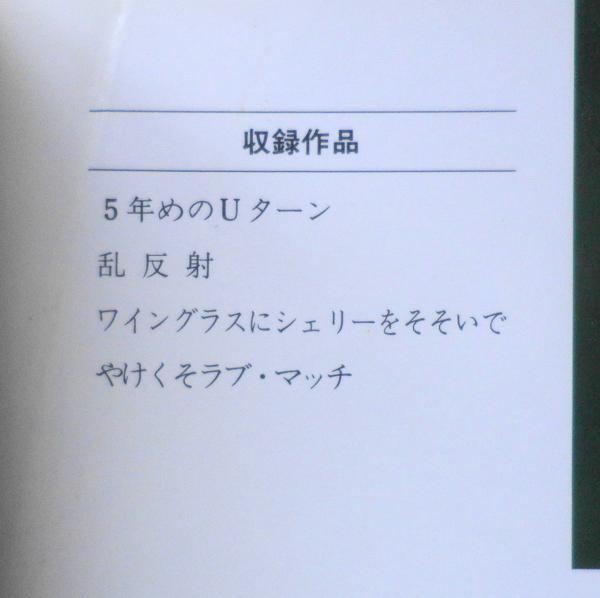 収録作品
5年めのUターン
乱反射
ワイングラスにシェリーをそそいで
やけくそラブ・マッチ